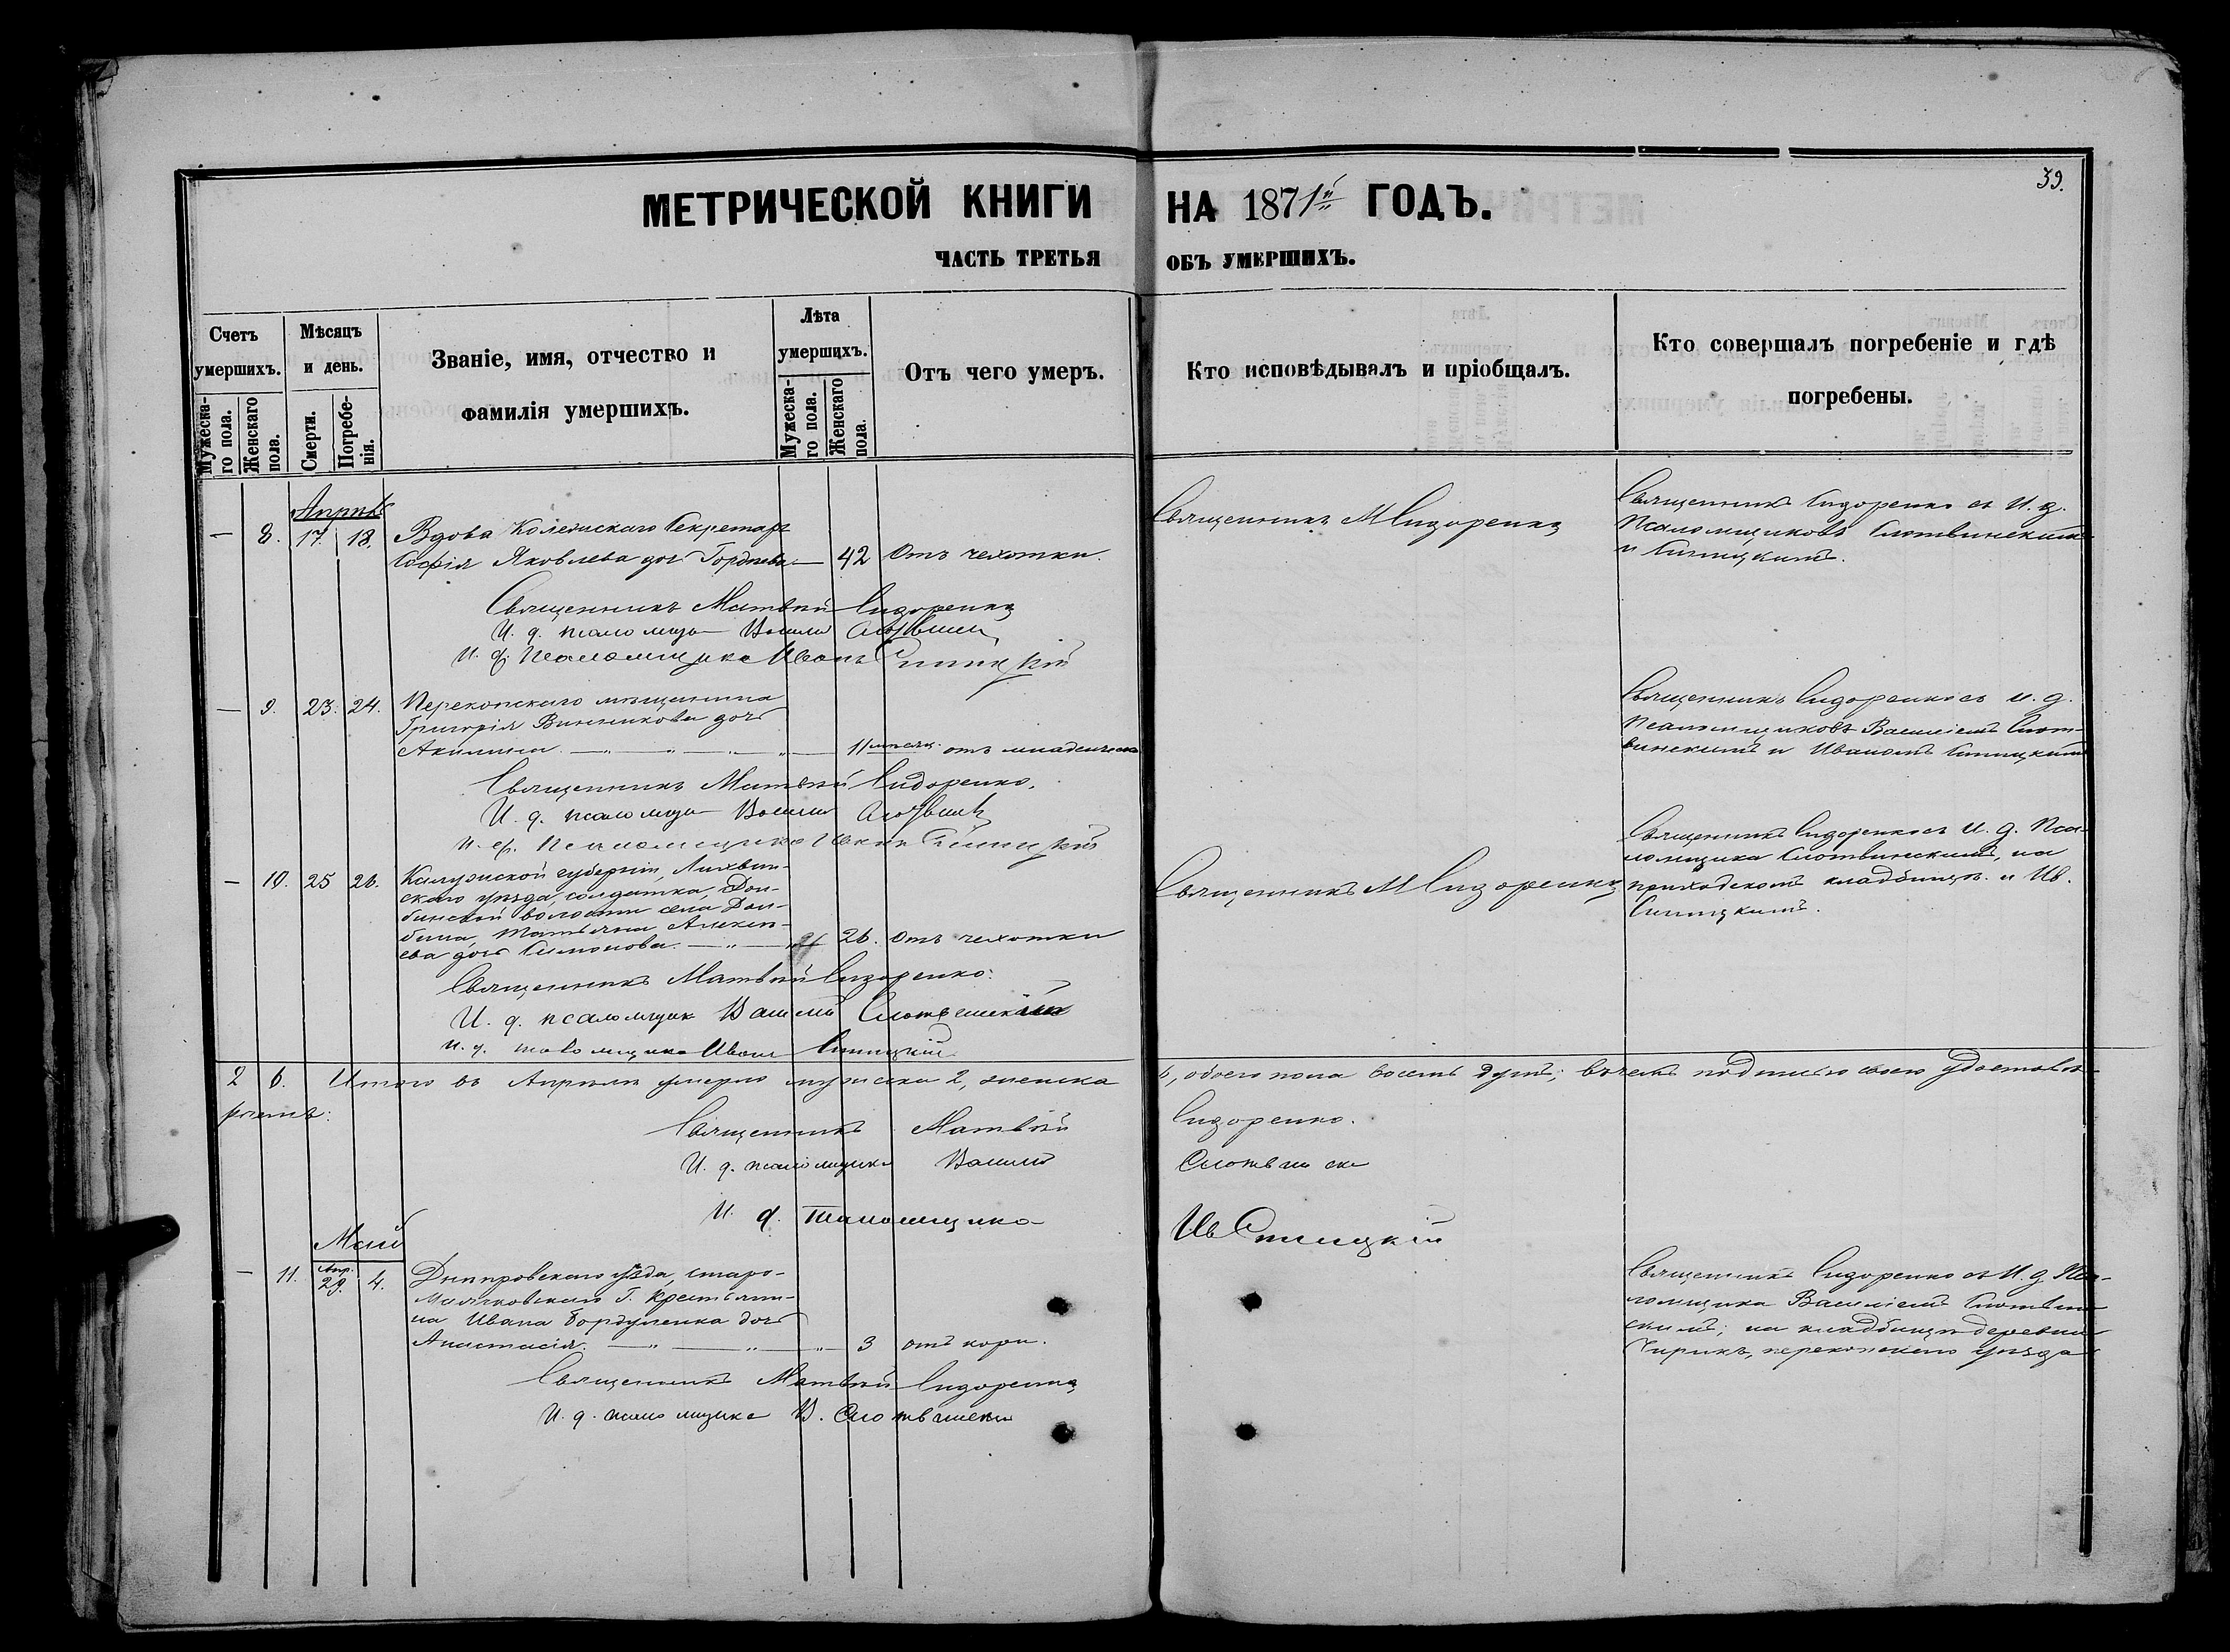 39.
МЕТРИЧЕСКОЙ КНИГИ НА 1871й ГОДЪ.
ЧАСТЬ ТРЕТЬЯ ОБЪ УМЕРШИХЪ.
Счетъ умершихъ.
Мужеска-го пола.
Женскаго пола.
Мѣсяцъ и день.
Смерти.
Погребе-нія.
Званіе, имя, отчество и
фамилія умершихъ.
Лѣта умершихъ.
Мужеска-го пола.
Женскаго пола.
Отъ чего умеръ.
Кто исповѣдывалъ и пріобщалъ.
Кто совершалъ погребеніе и гдѣ
погребены.
Апрѣль
— 8. 17. 18. Вдова Колежскаго Секретаря
Софія Яковлева доч — 42 Отъ чахотки.
Священникъ М Сидоренко
Священникъ Сидоренко съ И. д.
Псаломщиковъ Слотвинскимъ
и Спицкимъ.
Священникъ Матвѣй Сидоренко
И. д. псаломщ Василій
И. д. Псаломщика Иванъ Спицкій
— 9. 23. 24. Перекопскаго мѣщанина
Григорія Винникова дочь
Акилина — 11 мѣсяц отъ младенческ
Священникъ Сидоренко съ и. д.
Псаломщиковъ Василіемъ Слот-
винскимъ и Иваномъ Спицкимъ
Священникъ Матвѣй Сидоренко.
И. д. псаломщ Василій
И. д. Псаломщика Иванъ Спицкій
— 10. 25 26. Калужской губерніи, Лихвин-
скаго уѣзда, солдатка, Дол-
бинской волости села Дол-
бина, Татьяна Алексѣ-
ева доч Симонова. — 26. Отъ чахотки
Священникъ М Сидоренко
Священникъ Сидоренко съ И. д. Пса-
ломщика Слотвинскимъ, на
приходскомъ кладбищѣ. и Ив.
Спицкимъ.
Священникъ Матвѣй Сидоренко.
И. д. псаломщик Василій Слотвинскій
И. д. псаломщика Иванъ Спицкій
2 6. Итого въ Апрѣлѣ умерло мужска 2, женска 6, обоего пола восемь душъ; въ чемъ подписью своею удостовѣ-
ряемъ:
Священникъ Матвѣй Сидоренко.
И. д. псаломщика Василій Слотвинск
И. д. Псаломщика Ив Спицкій
Май
— 11. Апр. 29. 4. Днѣпровскаго уѣзда, старо-
Маячковскаго Г. крестьяни-
на Ивана дочь
Анастасія. — 3 отъ кори.
Священникъ Сидоренко съ И. д Пса-
ломщика Василіемъ Слотвин
скимъ; на кладбищѣ деревни
Чирикъ, перекопскаго уѣзда
Священникъ Матвѣй Сидоренко
И. д. псаломщика В. Слотвински